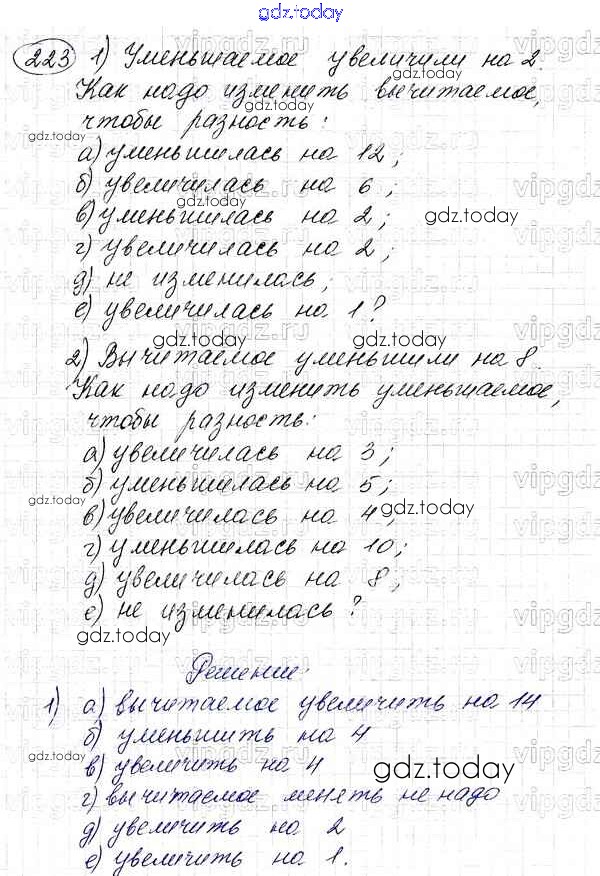 gdz.today
223 1) Уменьшаемое увеличили на 2.
Как надо изменить вычитаемое,
чтобы разность:
а) уменьшилась на 12;
б) увеличилась на 6;
в) уменьшилась на 2;
г) увеличилась на 2;
д) не изменилась;
е) увеличилась на 1?
2) Вычитаемое уменьшили на 8.
Как надо изменить уменьшаемое,
чтобы разность:
а) увеличилась на 3;
б) уменьшилась на 5;
в) увеличилась на 4;
г) уменьшилась на 10;
д) увеличилась на 8;
е) не изменилась?
Решение:
1) а) вычитаемое увеличить на 14
б) уменьшить на 4
в) увеличить на 4
г) вычитаемое менять не надо
д) увеличить на 2
е) увеличить на 1.